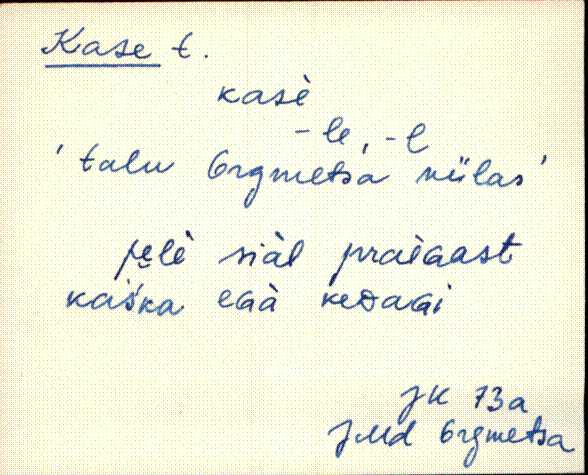 Kase t.
kasè
-le, -l
'talu Õrgmetsa külas'
pe̮lè siàl praèGast
kaśka eGà keDaGi
JK 73a
JMd Õrgmetsa